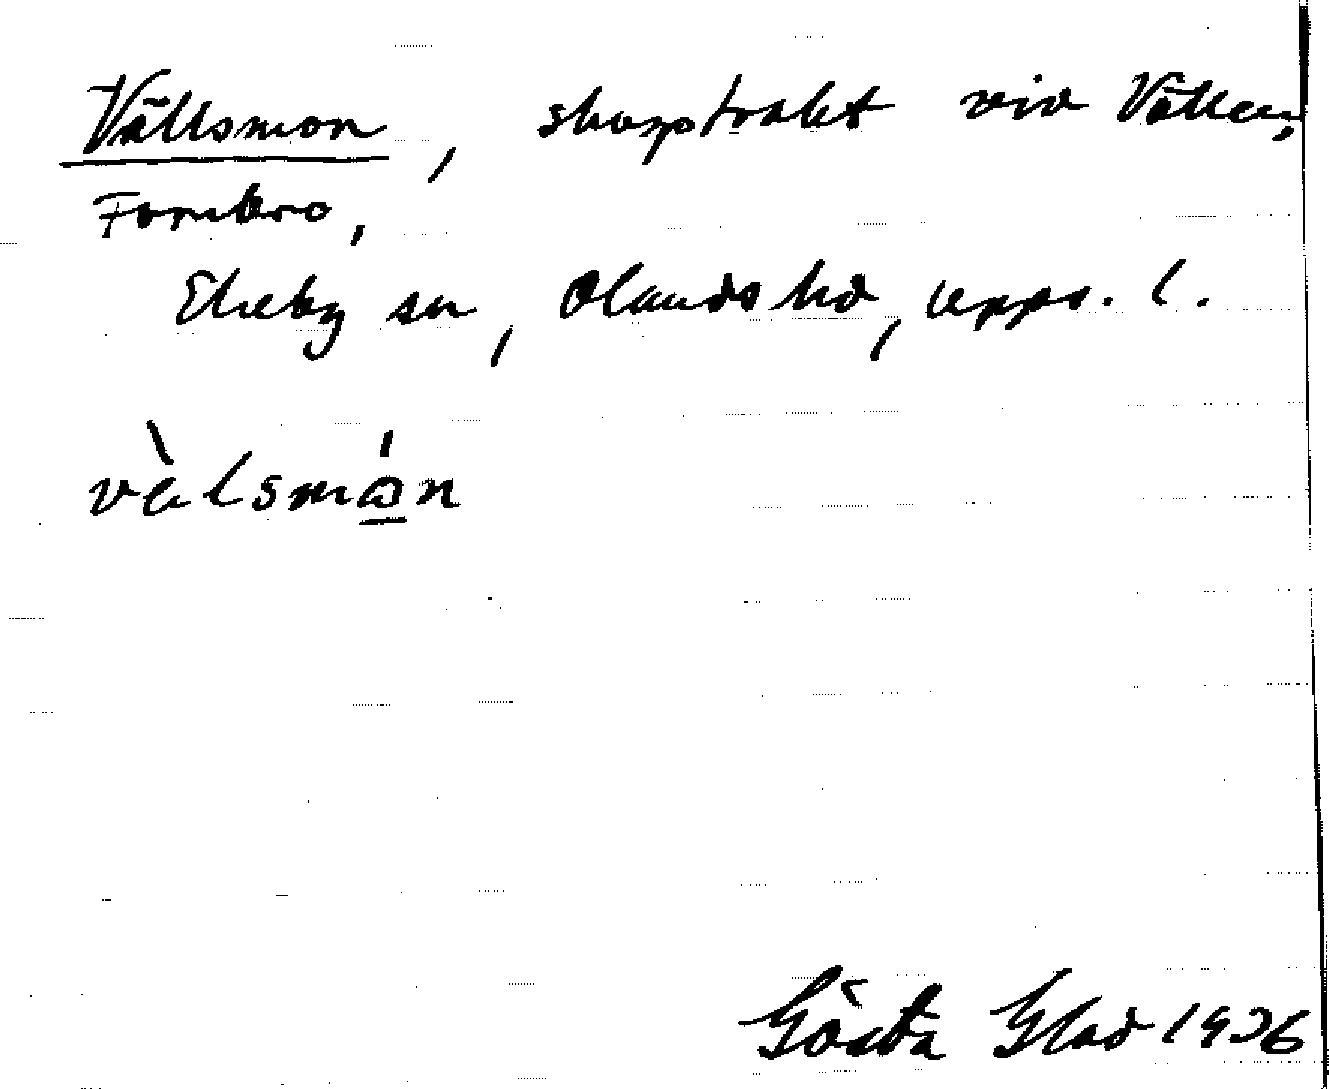 Vällsmon, skogstrakt vid Vällen,
Forsbro,
Ekeby sn, Olands hd, Upps. l.
vàlsmån
Gösta Glad 1936